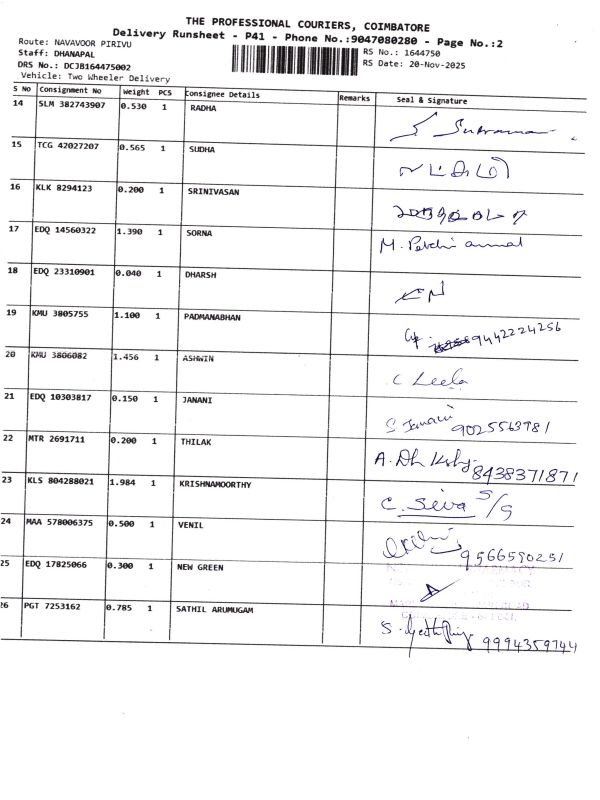 THE PROFESSIONAL COURIERS, COIMBATORE
Delivery Runsheet - P41 - Phone No.:9047080280 - Page No.:2
Route: NAVAVOOR PIRIVU
Staff: DHANAPAL
DRS No.: DCJB164475002
Vehicle: Two Wheeler Delivery
RS No.: 1644750
RS Date: 20-Nov-2025
S No Consignment No Weight PCS Consignee Details Remarks Seal & Signature
14 SLM 382743907 0.530 1 RADHA
15 TCG 42027207 0.565 1 SUDHA
16 KLK 8294123 0.200 1 SRINIVASAN
17 EDQ 14560322 1.390 1 SORNA M. Petchi ammal
18 EDQ 23310901 0.040 1 DHARSH
19 KMU 3805755 1.100 1 PADMANABHAN 9442224256
20 KMU 3806082 1.456 1 ASHWIN C Leela
21 EDQ 10303817 0.150 1 JANANI S Janani 9025563781
22 MTR 2691711 0.200 1 THILAK 8438371871
23 KLS 804288021 1.984 1 KRISHNAMOORTHY C. Siva S/S
24 MAA 578006375 0.500 1 VENIL 9566590251
25 EDQ 17825066 0.300 1 NEW GREEN
26 PGT 7253162 0.785 1 SATHIL ARUMUGAM 9994359744